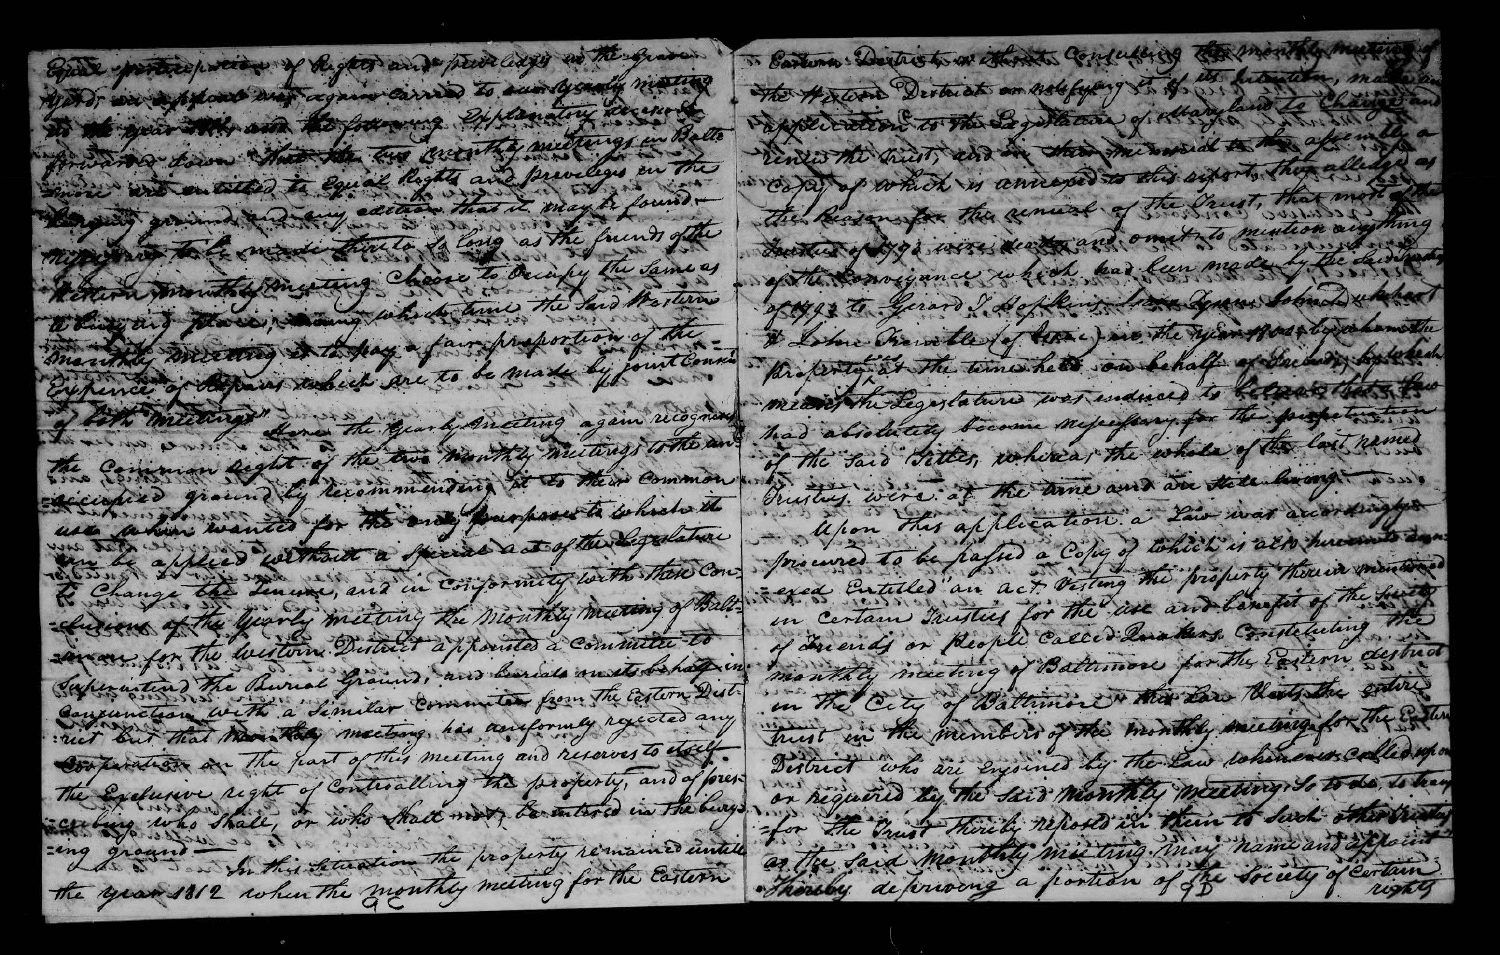 Equal participation of Rights and priviledges in the Grave
Yard, an appeal was again carried to our Yearly meeting
in the year and the following Explanatory decision
forwarded down "that the two monthly meetings in Balti-
more are entitled to Equal Rights and priveleges in the
burying ground and any addition that it may be found
necessary to be made thereto so long as the friends of the
Western monthly meeting Choose to Occupy the Same as
a burying place, during which time the Said Western
Monthly meeting is to pay a fair proportion of the
Expence of Repairs which are to be made by joint Consent
of both meetings"
Here the Yearly Meeting again recognizes
the Common right of the two monthly meetings to the un-
=occupied ground by recommending it to their Common
use when wanted for the only purpose to which it
can be applied without a special act of the Legislature
to Change the tenure, and in conformity with these Con-
=clusions of the Yearly meeting the Monthly Meeting of Balti-
=more for the western District appointed a Committee to
Superintend the Burial Ground, and burials on its behalf in
Conjunction with a Similar Committee from the Eastern Dist-
=rict but that Monthly meeting has uniformly rejected any
Cooperation on the part of this meeting and reserves to itself
the Exclusive right of Controlling the property, and of pres-
=cribing who Shall, or who Shall not, be interred in the bury-
=ing ground —
In this Situation the property remained untill
the year 1812 when the monthly meeting for the Eastern
9C
Eastern District without Consulting the monthly meeting of
the Western District or notifying it of its Intention, made an
application to the Legislature of Maryland to Change and
renew the Trust, and in their memorial to the assembly a
Copy of which is annexed to this report, they alledge as
the Reason for the renewal of the Trust, that most of the
Trustees of 1793 were dead, and omit to mention anything
of the Conveyance which had been made by the Said Trustees
of 1793 to Gerard T Hopkins, Isaac Tyson,
& John Trimble (of Isaac) in the year by whom the
property was at the time held on behalf of Friends, by which
means the Legislature was induced to believe that a Law
had absolutely become necessary for the perpetuation
of the Said Titles, whereas the whole of the last named
Trustees were at the time and are still living —
Upon this application a Law was accordingly
procured to be passed a Copy of which is also hereunto ann-
=exed Entitled "an act Vesting the property therein mentioned
in Certain Trustees for the use and benefit of the Society
of Friends or People Called Quakers Constituting the
monthly meeting of Baltimore for the Eastern district
in the City of Baltimore" this Law Vests the entire
trust in the members of the monthly meeting for the Eastern
District who are enjoined by the Law whenever called upon
or required by the Said Monthly meeting So to do, to trans-
=fer the Trust thereby reposed in them to Such other Trustees
as the Said Monthly meeting may name and appoint
Thereby depriving a portion of the Society of Certain
9D
rights